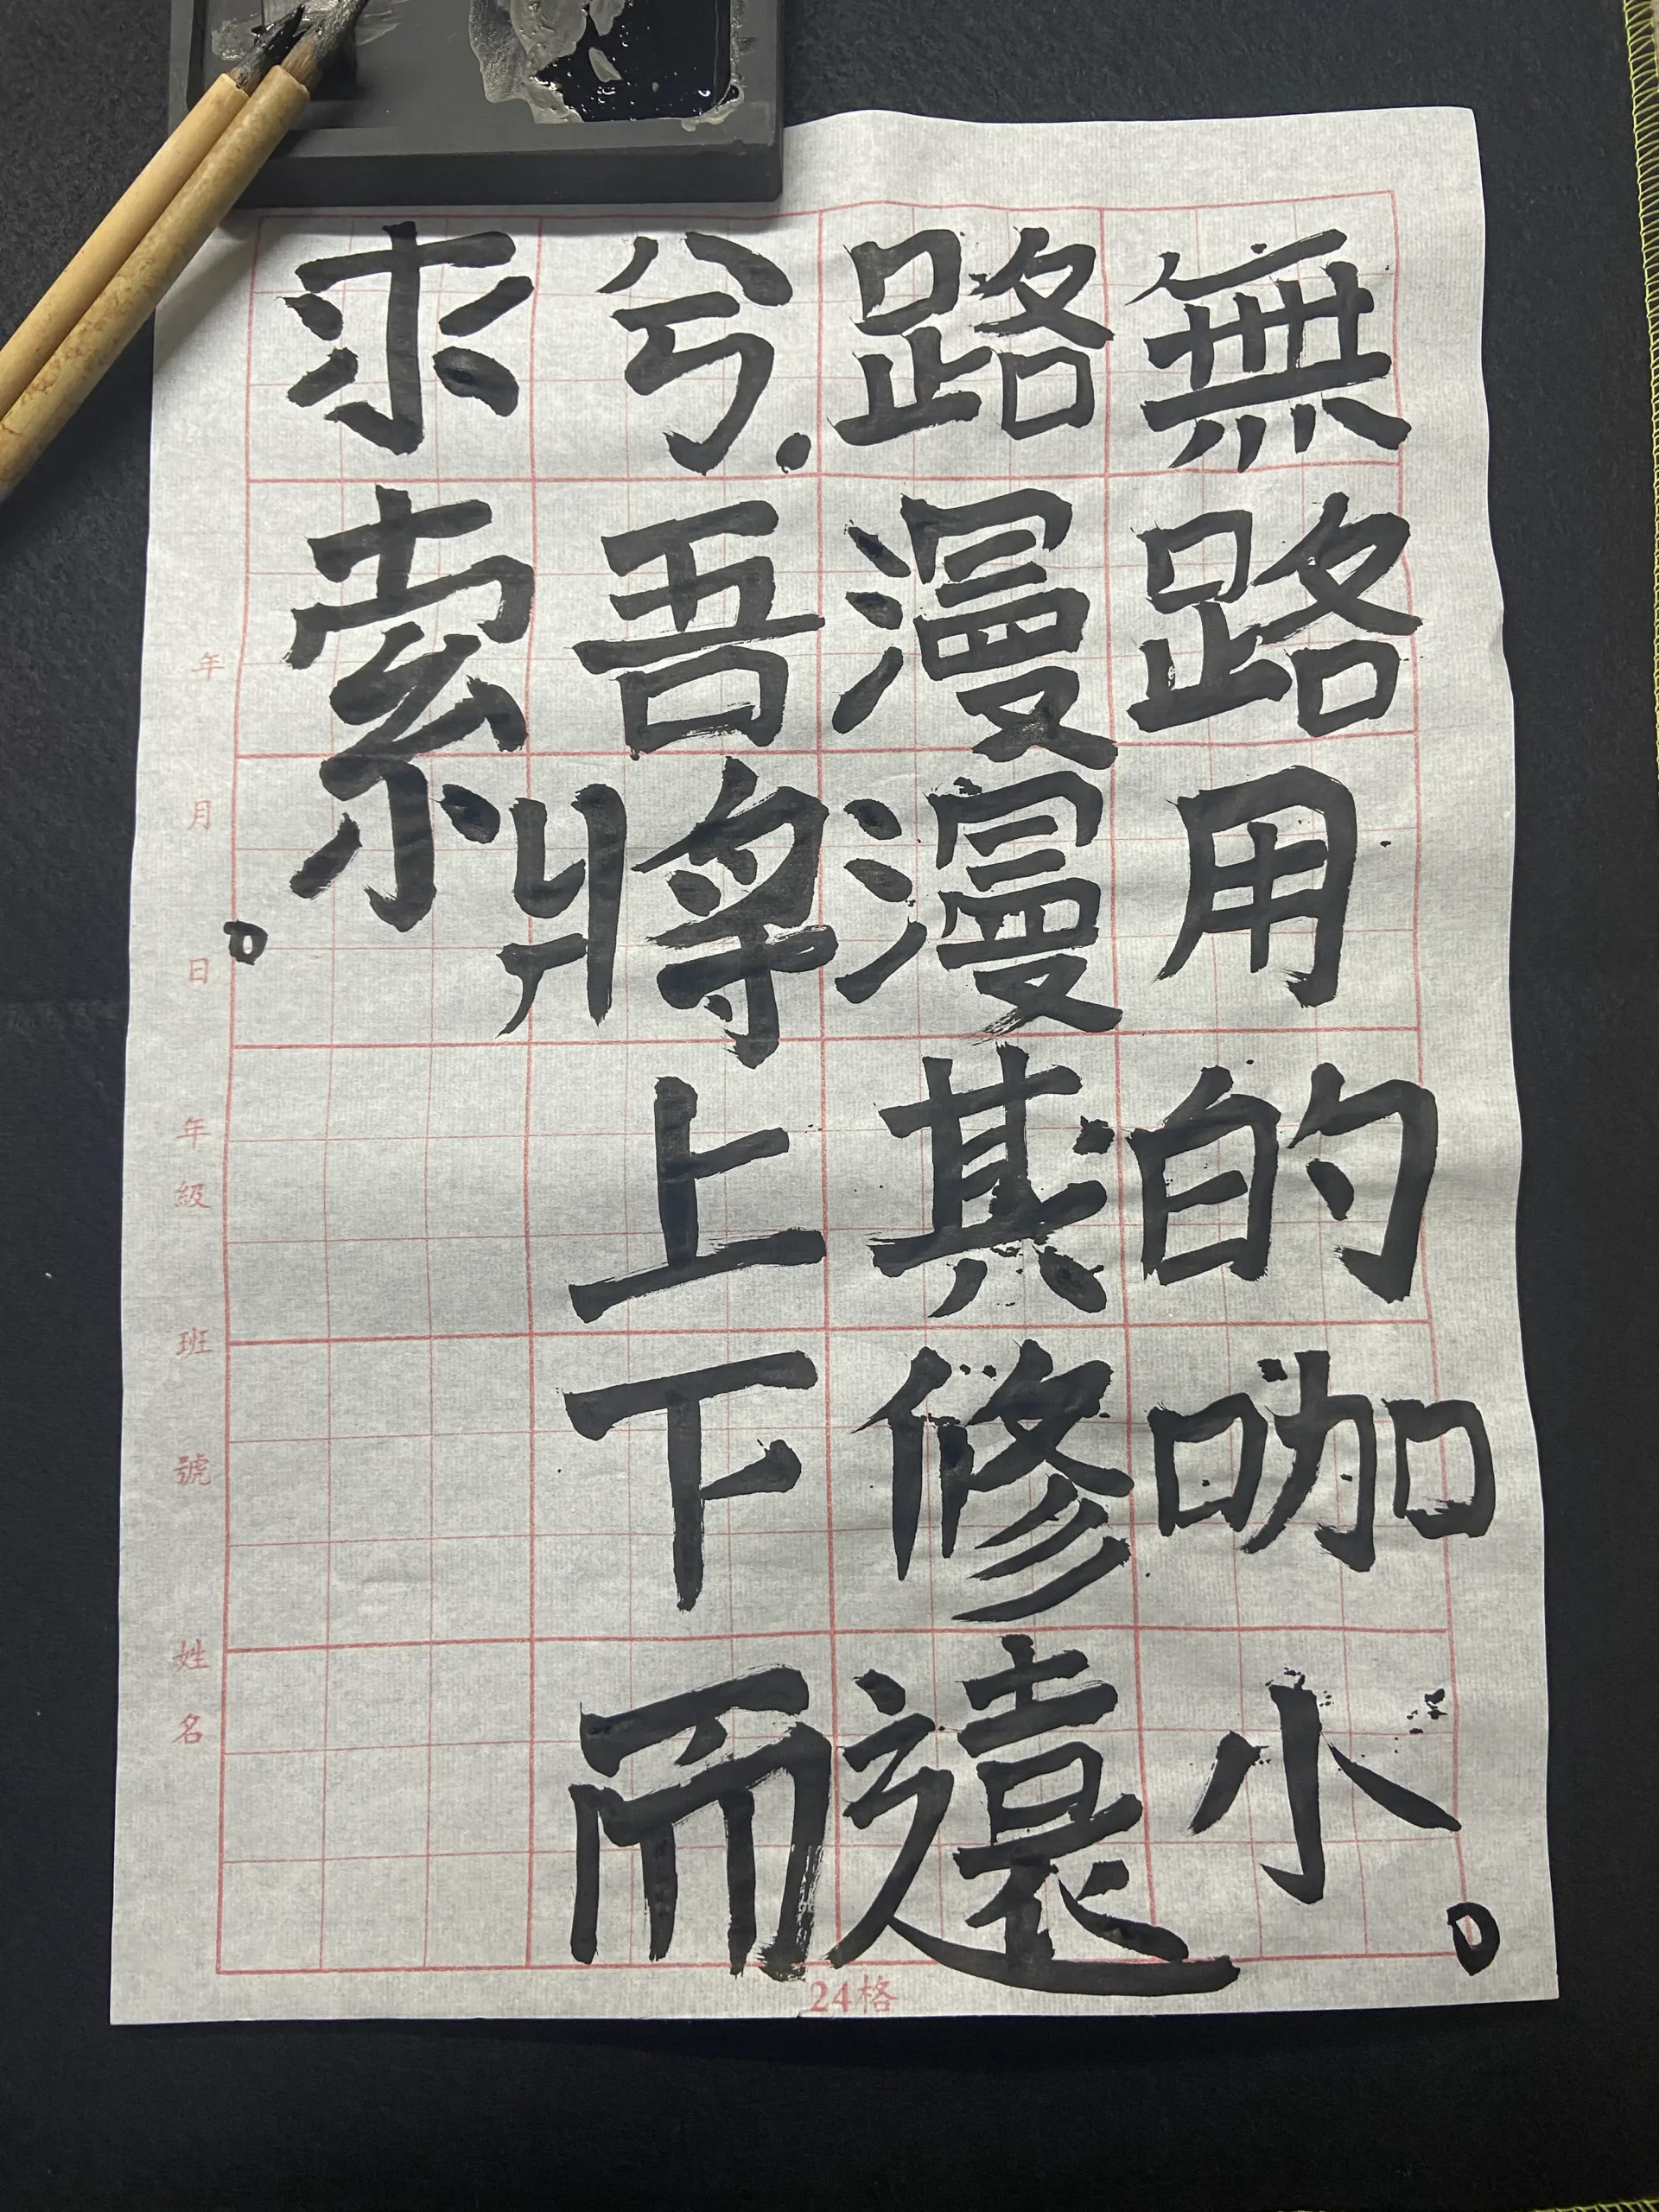 無路用的咖小。
路漫漫其修遠
兮.吾將上下而
求索。
年 月 日
年級 班 號 姓名
24格